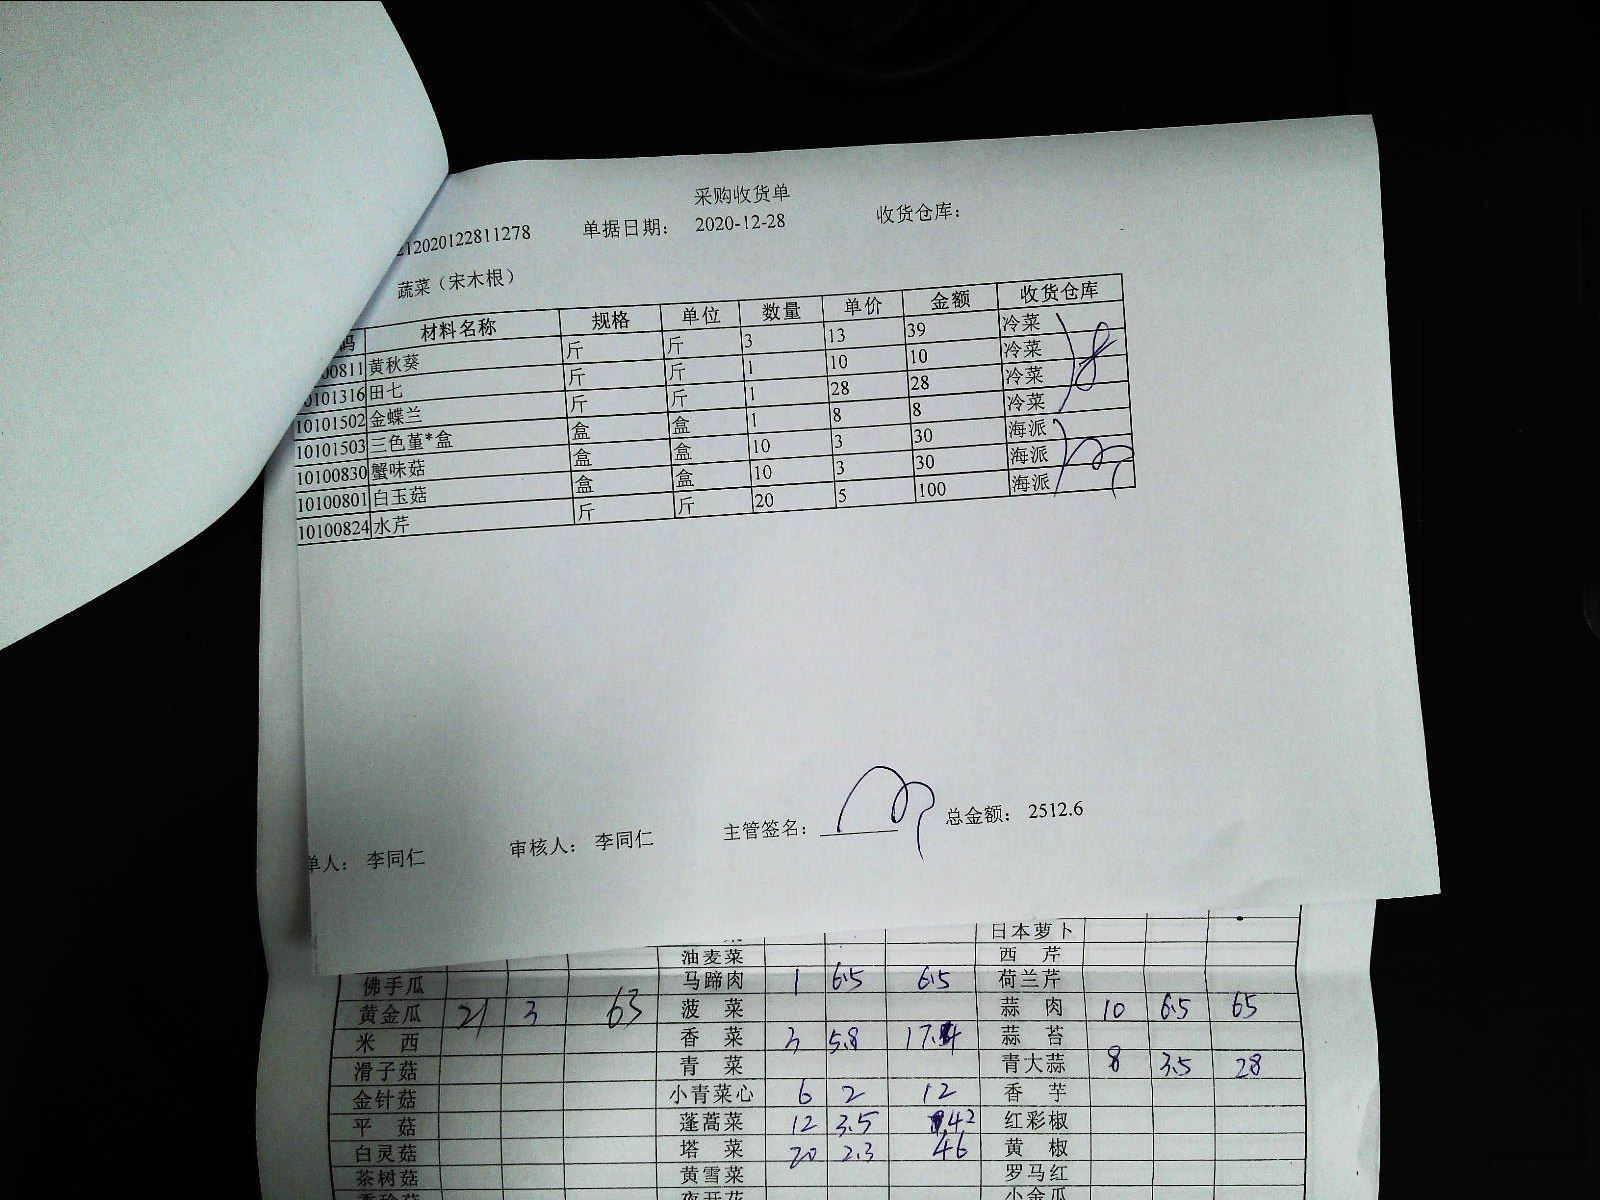 采购收货单
212020122811278 单据日期： 2020-12-28 收货仓库：
蔬菜（宋木根）
码 材料名称 规格 单位 数量 单价 金额 收货仓库
00811 黄秋葵 斤 斤 3 13 39 冷菜
0101316 田七 斤 斤 1 10 10 冷菜
10101502 金蝶兰 斤 斤 1 28 28 冷菜
10101503 三色堇*盒 盒 盒 1 8 8 冷菜
10100830 蟹味菇 盒 盒 10 3 30 海派
10100801 白玉菇 盒 盒 10 3 30 海派
10100824 水芹 斤 斤 20 5 100 海派
单人： 李同仁 审核人： 李同仁 主管签名： 总金额： 2512.6
日本萝卜
油麦菜 西芹
佛手瓜 马蹄肉 1 6.5 6.5 荷兰芹
黄金瓜 21 3 63 菠菜 蒜肉 10 6.5 65
米西 香菜 3 5.8 17.4 蒜苔
滑子菇 青菜 青大蒜 8 3.5 28
金针菇 小青菜心 6 2 12 香芋
平菇 蓬蒿菜 12 3.5 42 红彩椒
白灵菇 塔菜 20 2.3 46 黄椒
茶树菇 黄雪菜 罗马红
夜开花 小金瓜